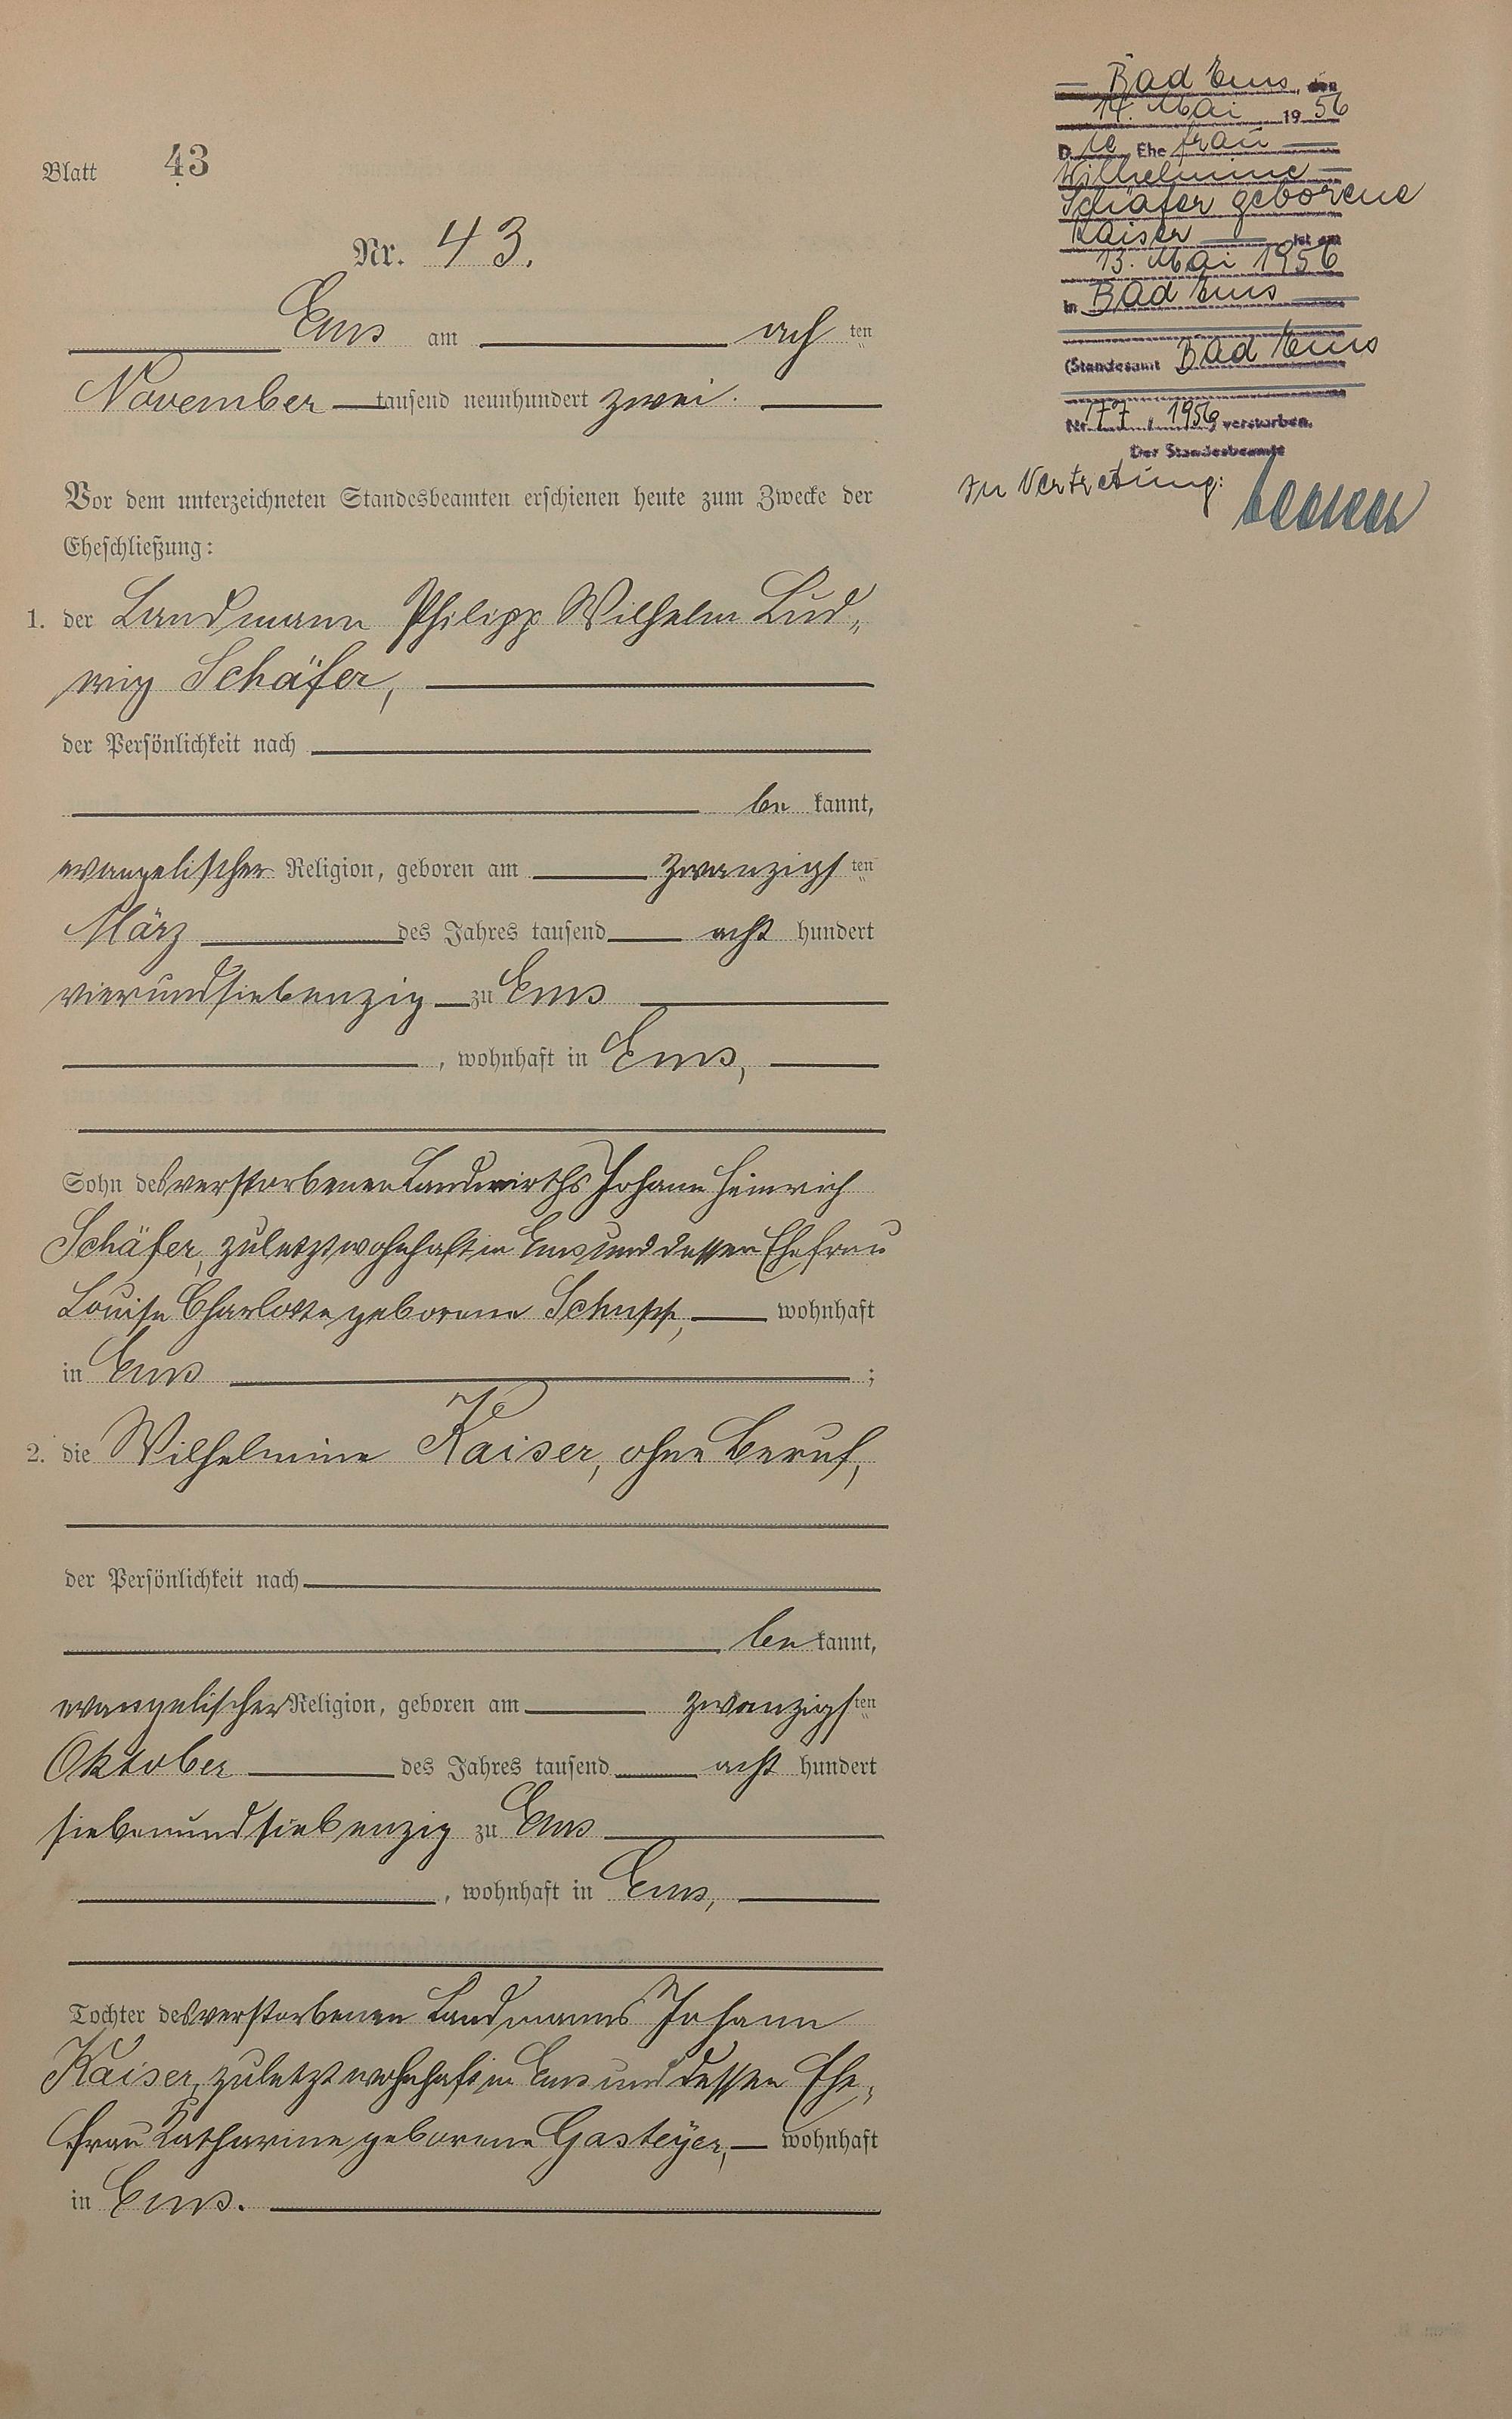 Blatt 43
Nr. 43.
Ems am ach ten
November tausend neunhundert zwei.
Vor dem unterzeichneten Standesbeamten erschienen heute zum Zwecke der
Eheschließung:
1. der Landmann Philipp Wilhelm Lud„
wig Schäfer,
der Persönlichkeit nach
be kannt,
evangelischer Religion, geboren am zwanzigs ten
März des Jahres tausend acht hundert
vierundsiebenzig zu Ems
, wohnhaft in Ems,
Sohn des verstorbenen Landwirths Johann Heinrich
Schäfer, zuletzt wohnhaft in Ems und dessen Ehefrau
Louise Charlotte geborene Schupp, wohnhaft
in Ems ;
2. die Wilhelmine Kaiser, ohne Beruf,
der Persönlichkeit nach
be kannt,
evangelischer Religion, geboren am zwanzigs ten
Oktober des Jahres tausend acht hundert
siebenundsiebenzig zu Ems
, wohnhaft in Ems,
Tochter des verstorbenen Landmanns Johann
Kaiser, zuletzt wohnhaft in Ems und dessen Ehe„
frau Katharine geborene Gasteyer, wohnhaft
in Ems.
Bad Ems, den
14. Mai 1956
Die Ehefrau
Wilhelmine
Schäfer geborene
Kaiser ist am
13. Mai 1956
in Bad Ems
(Standesamt Bad Ems
Nr. 177 / 1956) verstorben.
Der Standesbeamte
In Vertretung: